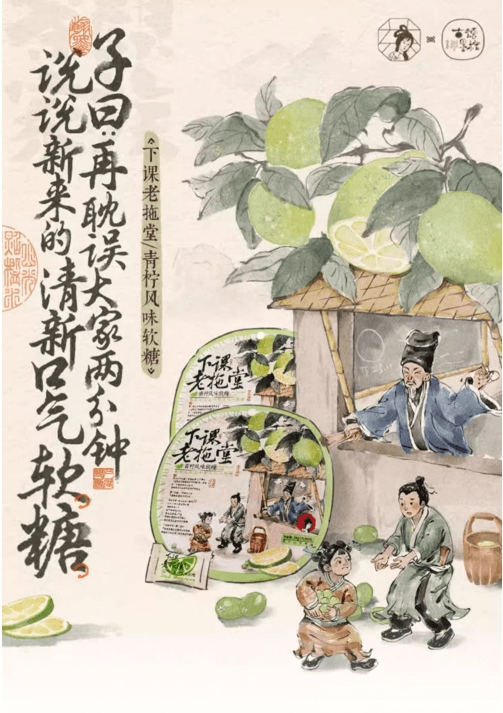 子曰：再耽误大家两分钟
说说新来的清新口气软糖
下课老拖堂/青柠风味软糖
下课
老拖堂
下课
老拖堂
青柠风味软糖